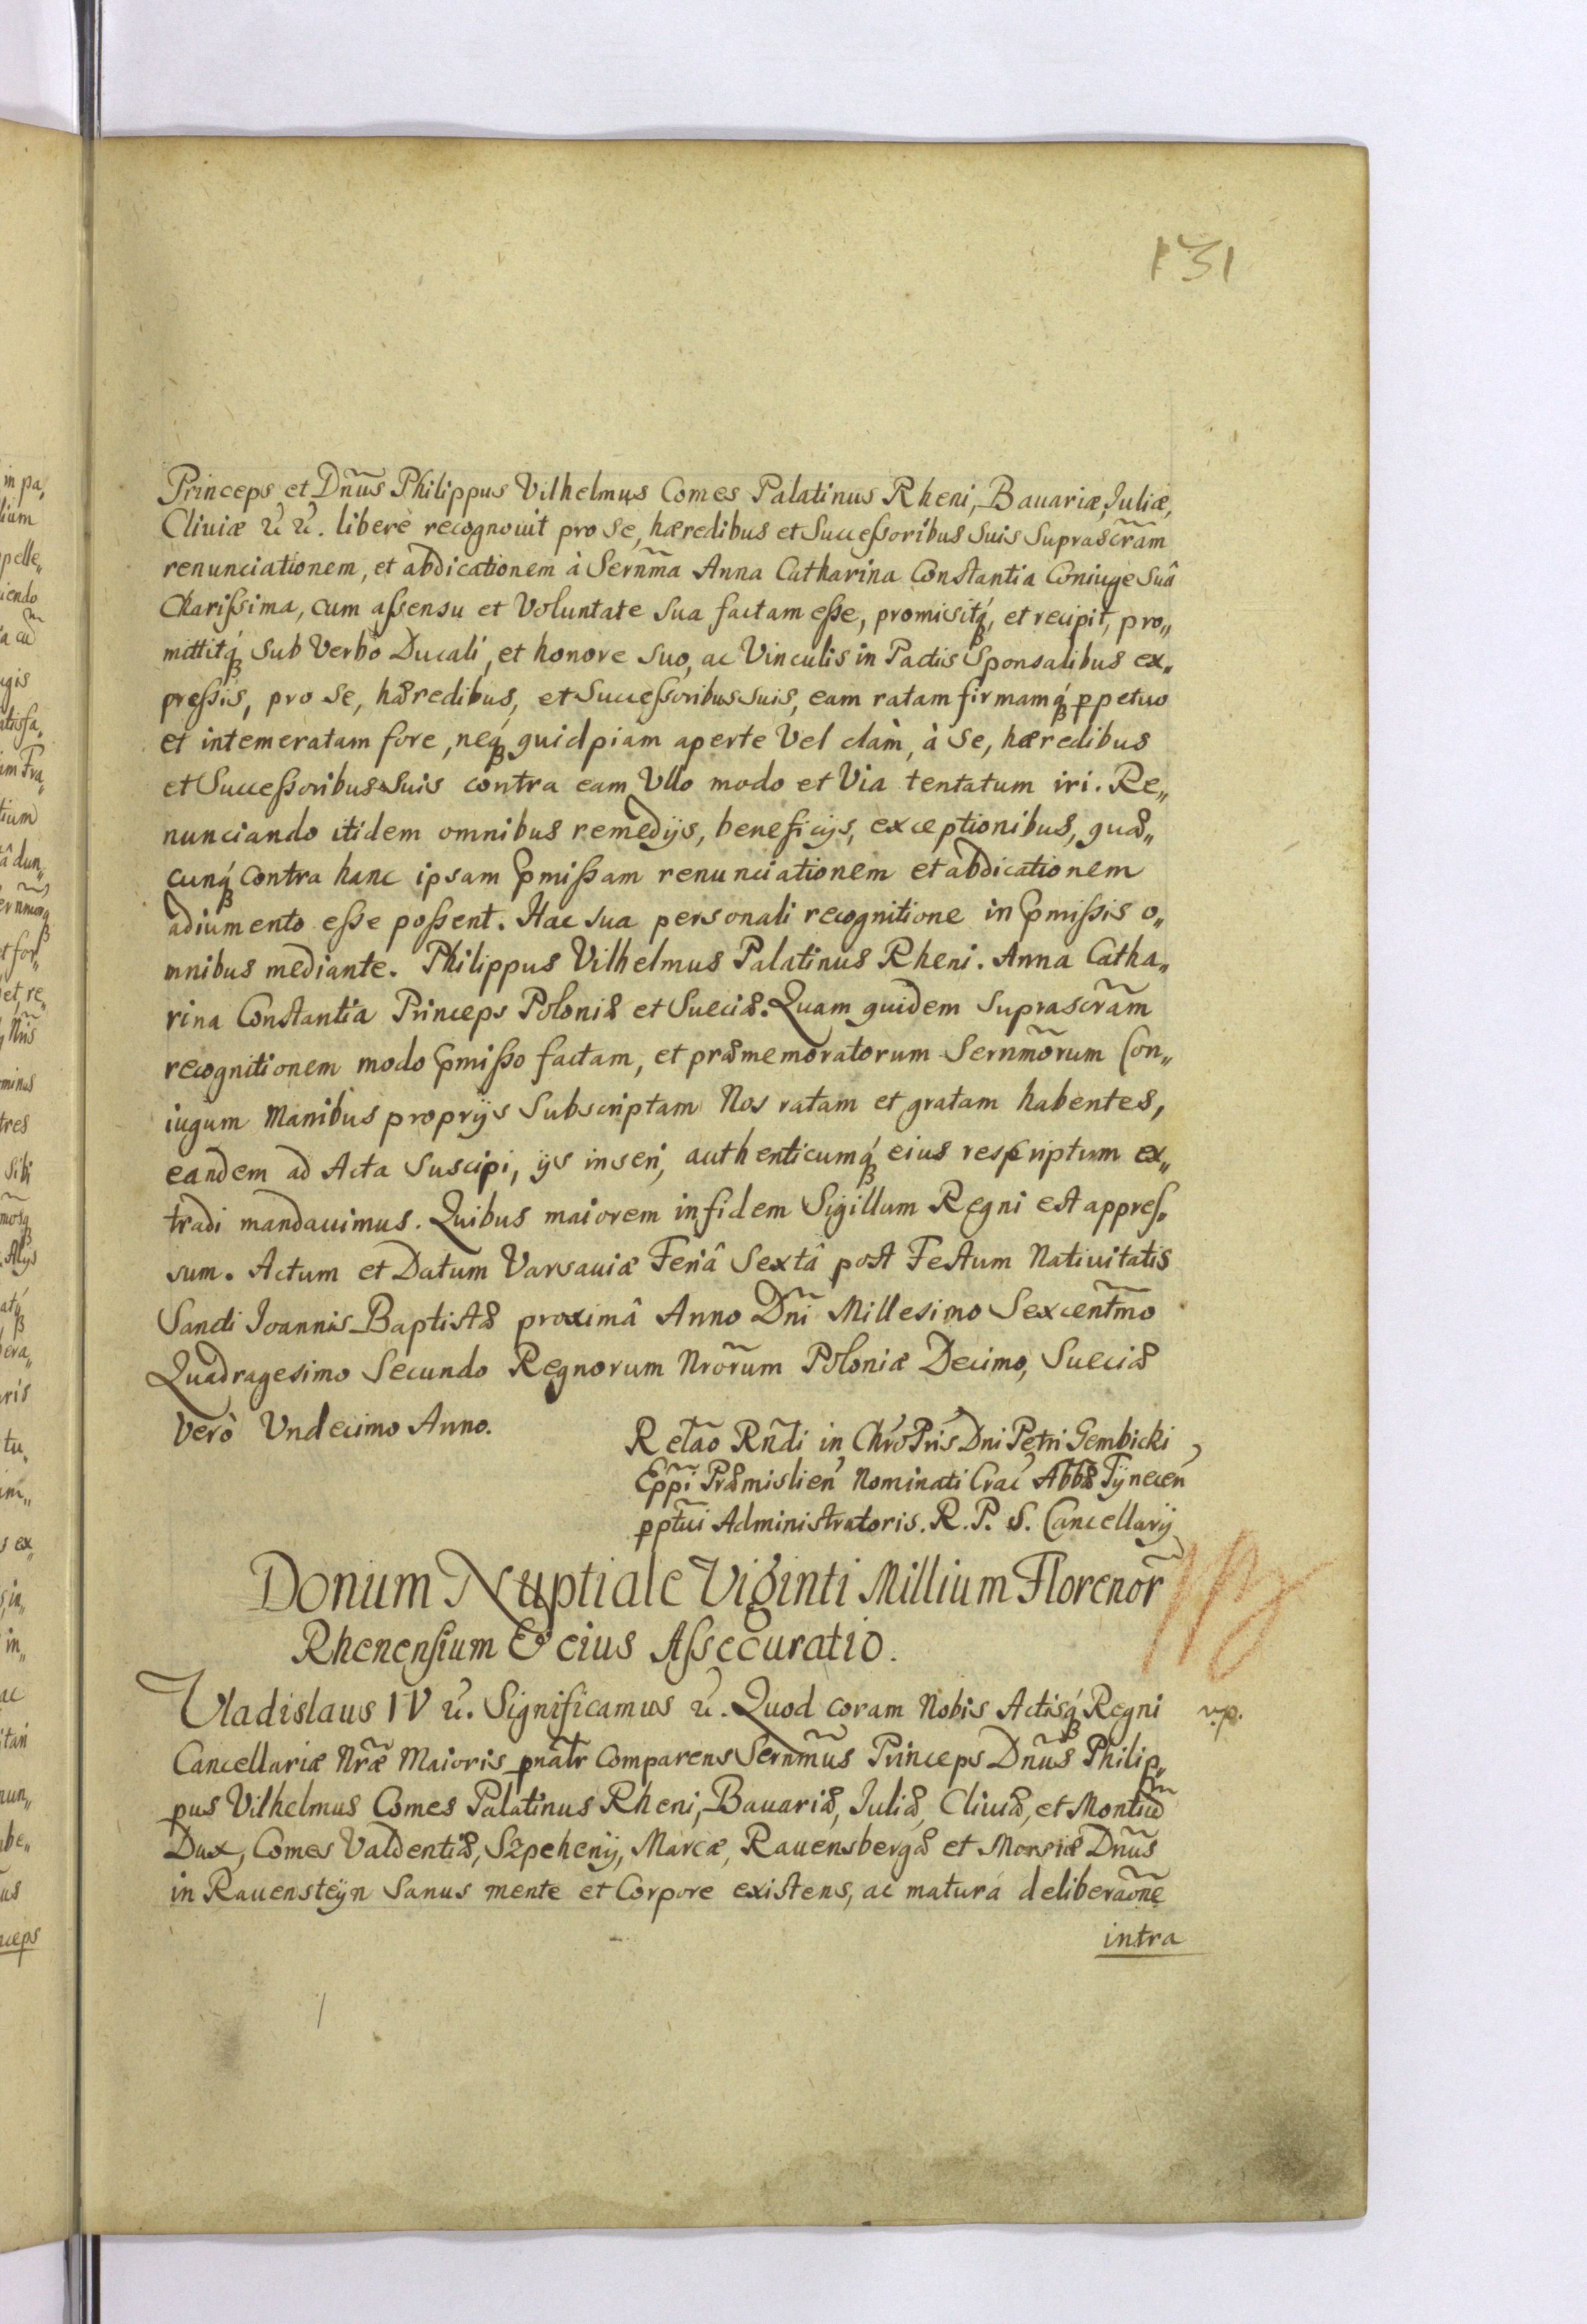 131
Princeps et Dñus Philippus Vilhelmus Comes Palatinus Rheni, Bauariæ, Juliæ,
Cliuiæ &c &c. liberè recognouit pro se, hæredibus et Succeßoribus Suis Suprascr̃am
renunciationem, et abdicationem à Serñma Anna Catharina Constantia Coniuge Suâ
Charißima, cum aßensu et Voluntate Sua factam eße, promisitq́, et recipit, pro„
mittitq́ Sub Verbo Ducali, et honore Suo, ac Vinculis in Pactis Sponsalibus ex„
preßis, pro Se, hæredibus, et Succeßoribus Suis, eam ratam firmamq́ ꝑpetuo
et intemeratam fore, neq́ quidpiam aperte Vel clàm, à Se, hæredibus
et Succeßoribus Suis contra eam Vllo modo et Via tentatum iri. Re„
nunciando itidem omnibus remedijs, beneficijs, exceptionibus, quæ„
cunq́ contra hanc ipsam p̃mißam renunciationem et abdicationem
adiumento eße poßent. Hac Sua personali recognitione in p̃mißis o„
mnibus mediante. Philippus Vilhelmus Palatinus Rheni. Anna Catha„
rina Constantia Princeps Poloniæ et Sueciæ. Quam quidem Suprascr̃am
recognitionem modo p̃mißo factam, et præmemoratorum Serñmorum Con„
iugum Manibus proprijs Subscriptam Nos ratam et gratam habentes,
eandem ad Acta Suscipi, ijs inseri, authenticumq́ eius rescriptum ex„
tradi mandauimus. Quibus maiorem in fidem Sigillum Regni est appres„
sum. Actum et Datum Varsauiæ Feriâ Sextâ post Festum Natiuitatis
Sancti Joannis Baptistæ proximâ Anno Dñi Millesimo Sexcent̃mo
Quadragesimo Secundo Regnorum Nr̃orum Poloniæ Decimo, Sueciæ
Verò Vndecimo Anno.
Relão Rñdi in Chr̃o Pr̃is Dni Petri Gembicki
Epp̃i Præmislien̄ Nominati Crac̄ Abbæ Tÿnecen̄
ꝑpt̃ui Administratoris. R. P. S. Cancellarij
Donum Nuptiale Viginti Millium Florenor̃
Rhenensium & eius Aßecuratio.
Vladislaus IV &c. Significamus &c. Quod coram Nobis Actisq́ Regni
Cancellariæ Nr̃æ Maioris ꝑnãlr Comparens Serñmus Princeps Dñus Philip„
pus Vilhelmus Comes Palatinus Rheni, Bauariæ, Juliæ, Cliuiæ, et Montiũ
Dux, Comes Valdentiæ, Szpehenij, Marcæ, Rauensbergæ et Morsiæ Dñus
in Rauensteÿn Sanus mente et Corpore existens, ac maturá deliberãone
intra